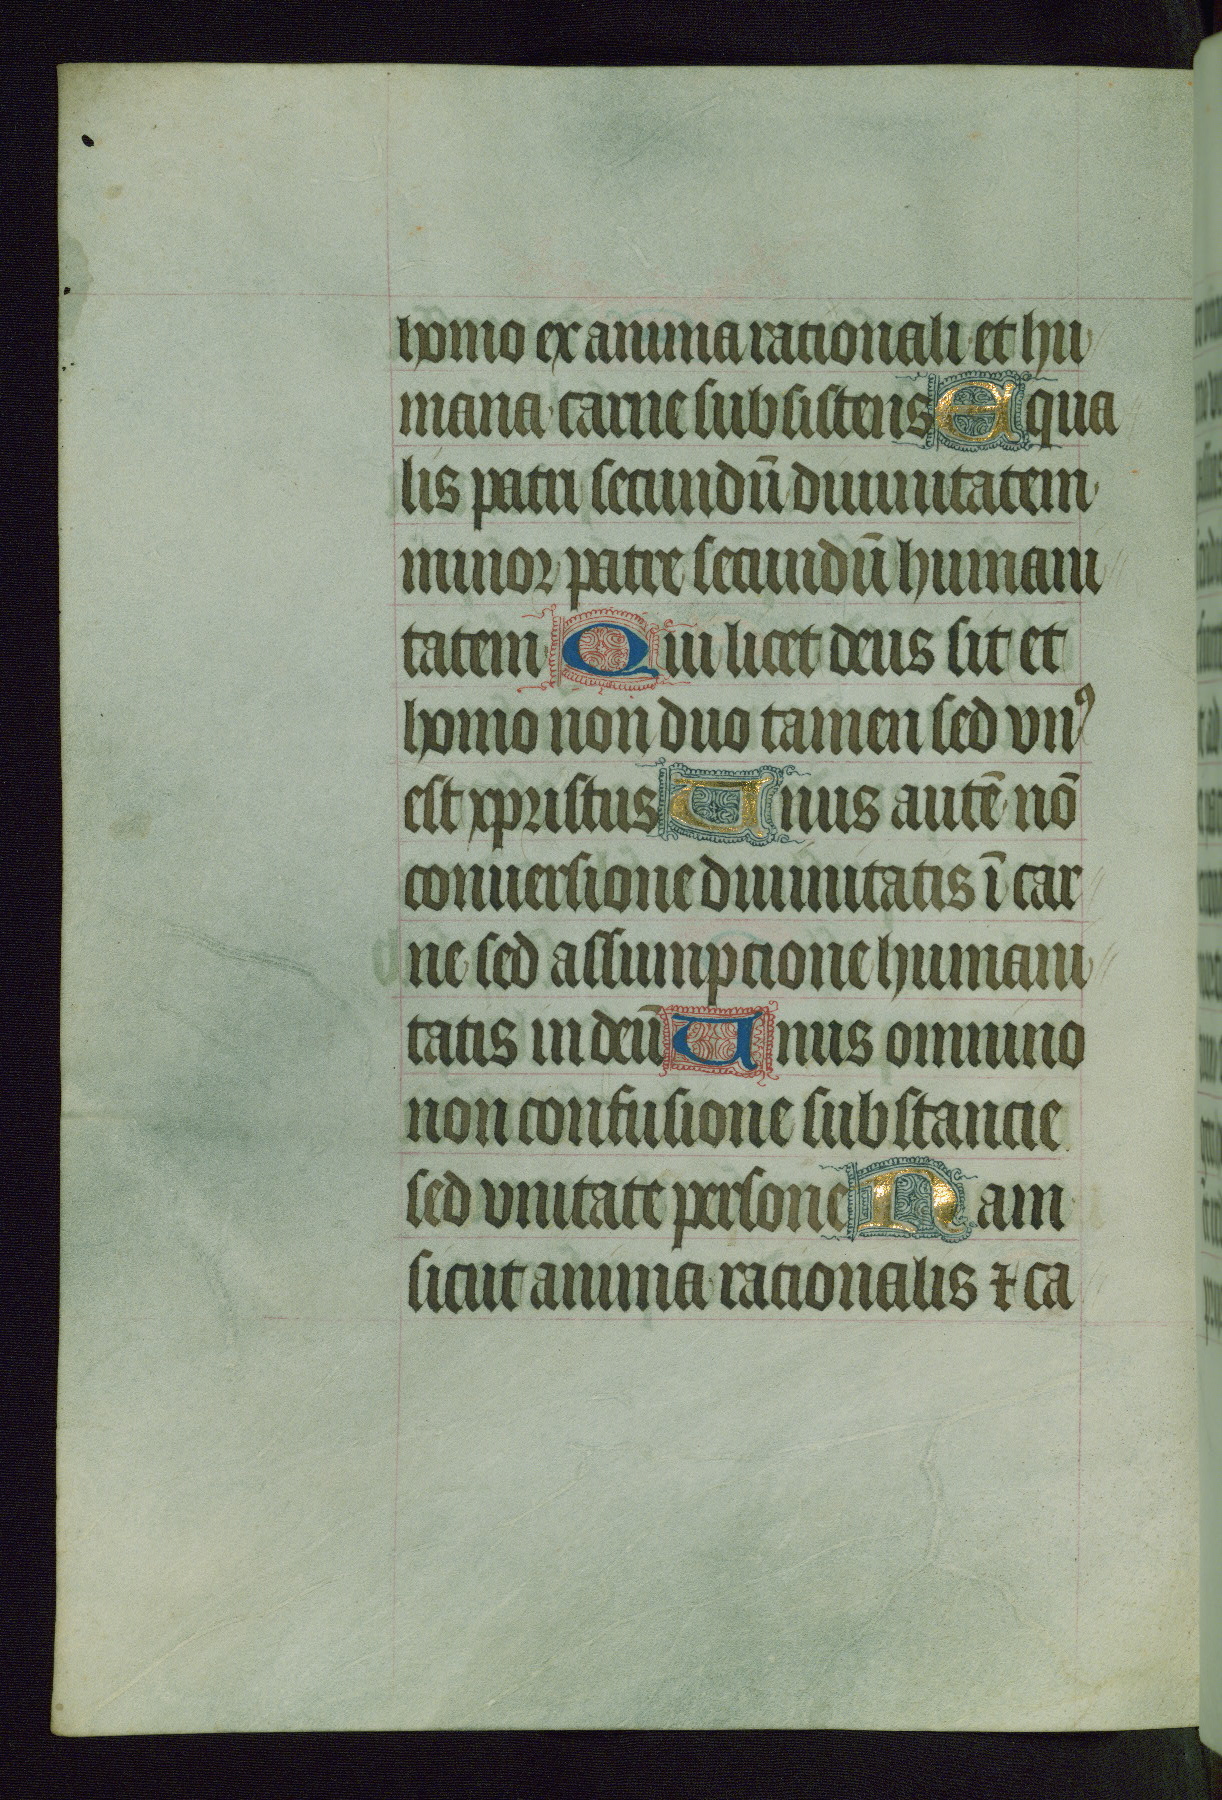 homo ex anima rationali et hu
mana carne subsistens Equa
lis patri secundū diuinitatem
minor patre secundū humani
tatem Qui licet deus sit et
homo non duo tamen sed vnꝰ
est xpristus Unus autē nō
conuersione diuinitatis ī car
ne sed assumptione humani
tatis in deū Unus omnino
non confusione substancie
sed vnitate persone Nam
sicut anima rationalis ⁊ ca